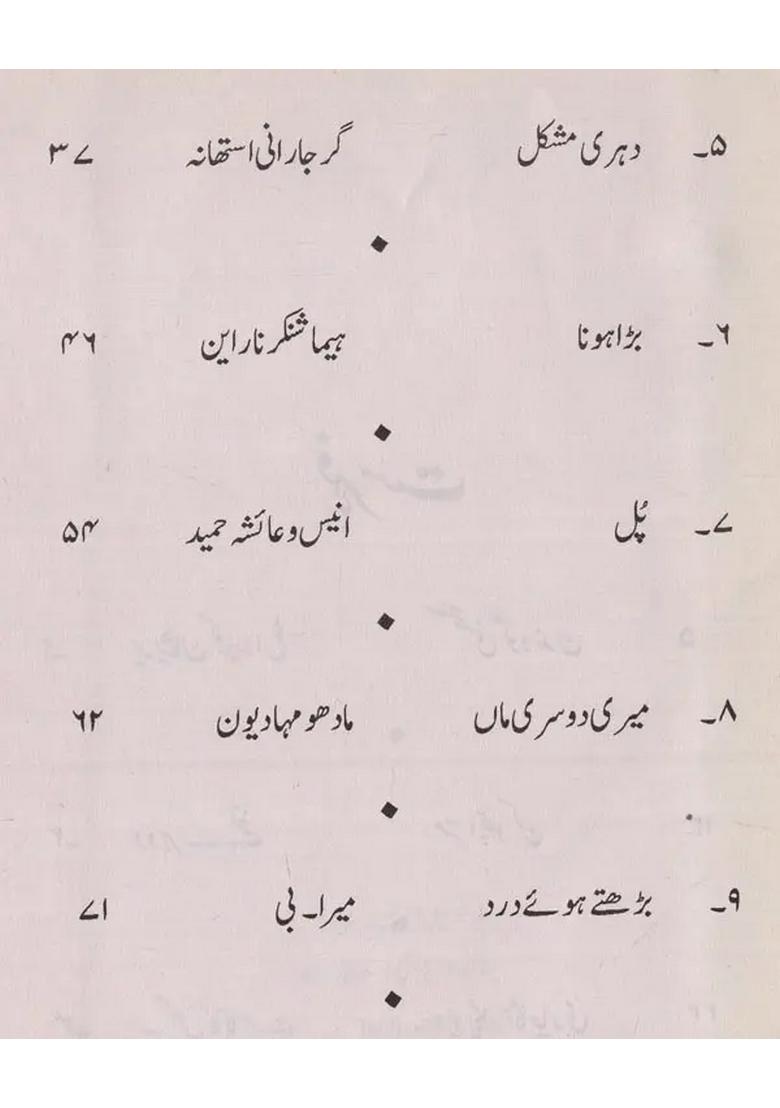 ۵۔ دہری مشکل گرجارانی استھانہ ۳۷
۶۔ بڑا ہونا ہیما شنکر نارا ین ۴۶
۷۔ پُل انیس و عائشہ حمید ۵۴
۸۔ میری دوسری ماں مادھو مہادیون ۶۲
۹۔ بڑھتے ہوئے درد میرا۔ بی ۷۱
فہرست